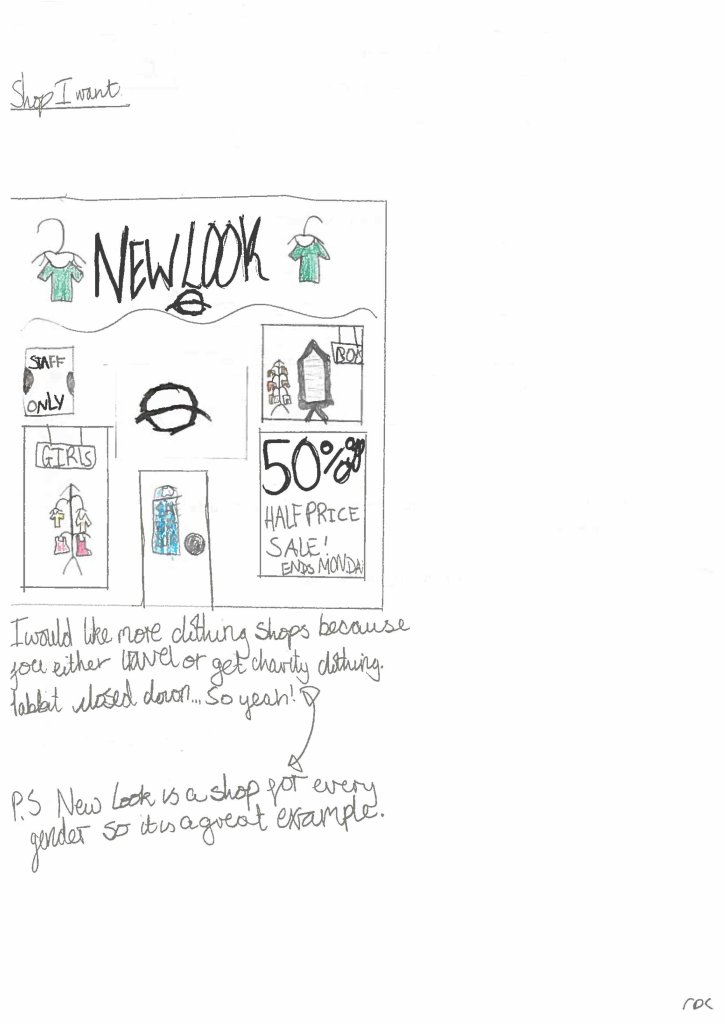 Shop I want
NEW LOOK
STAFF
ONLY
BOY
GIRLS
50% off
HALF PRICE
SALE!
ENDS MONDA
I would like more clothing shops because
you either travel or get charity clothing.
closed down... So yeah!
P.S New Look is a shop for every
gender so it is a great example.